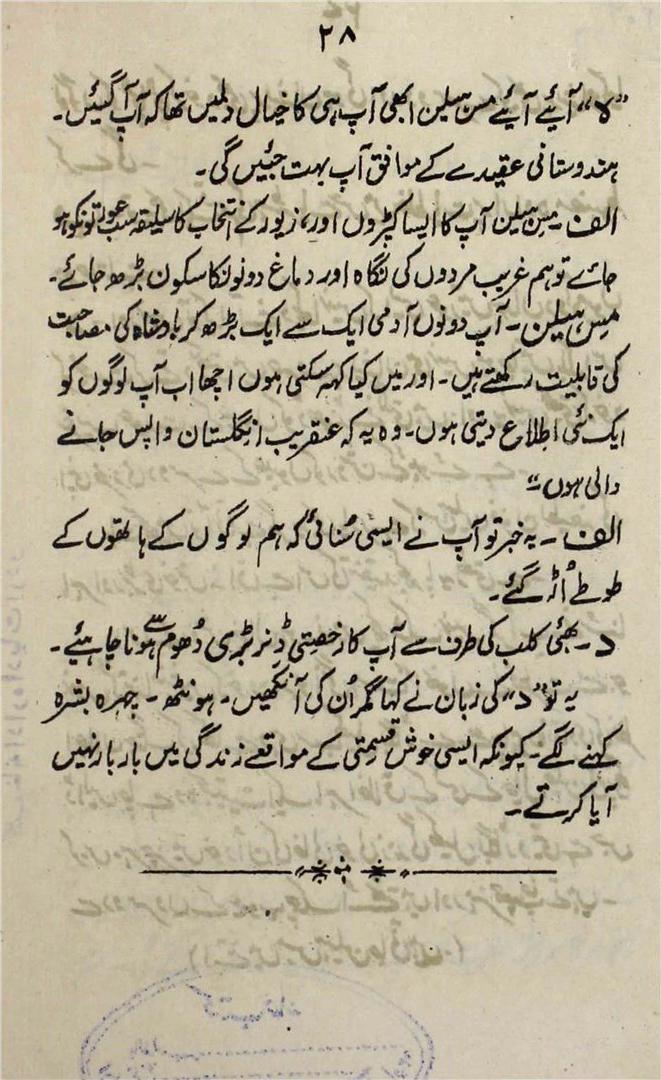 ۲۸
"لا" آئیے آئیے مس ہیلن ابھی آپ ہی کا خیال دلمیں تھا کہ آپ آگئیں۔
ہندوستانی عقیدے کے موافق آپ بہت جئیں گی۔
الف۔ مس ہیلن آپ کا ایسا کپڑوں اور، زیور کے انتخاب کا سلیقہ سب عورتونکو ہو
جائے تو ہم غریب مردوں کی نگاہ اور دماغ دونونکا سکون بڑھ جائے۔
مِس ہیلن۔ آپ دونوں آدمی ایک سے ایک بڑھ کر بادشاہ کی مصاحبت
کی قابلیت رکھتے ہیں۔ اور میں کیا کہہ سکتی ہوں اچھا اب آپ لوگوں کو
ایک نئی اطلاع دیتی ہوں۔ وہ یہ کہ عنقریب انگلستان واپس جانے
والی ہوں"
الف۔ یہ خبر تو آپ نے ایسی سُنائی کہ ہم لوگوں کے ہاتھوں کے
طوطے اُڑ گئے۔
د۔ بھئی کلب کی طرف سے آپ کا رخصتی ڈِنر بڑی دُھوم سے ہونا چاہئیے۔
یہ تو "د" کی زبان نے کہا مگر اُن کی آنکھیں۔ ہونٹھ۔ چہرہ بشرہ
کہنے لگے۔ کیونکہ ایسی خوش قسمتی کے مواقعے زندگی میں بار بار نہیں
آیا کرتے۔